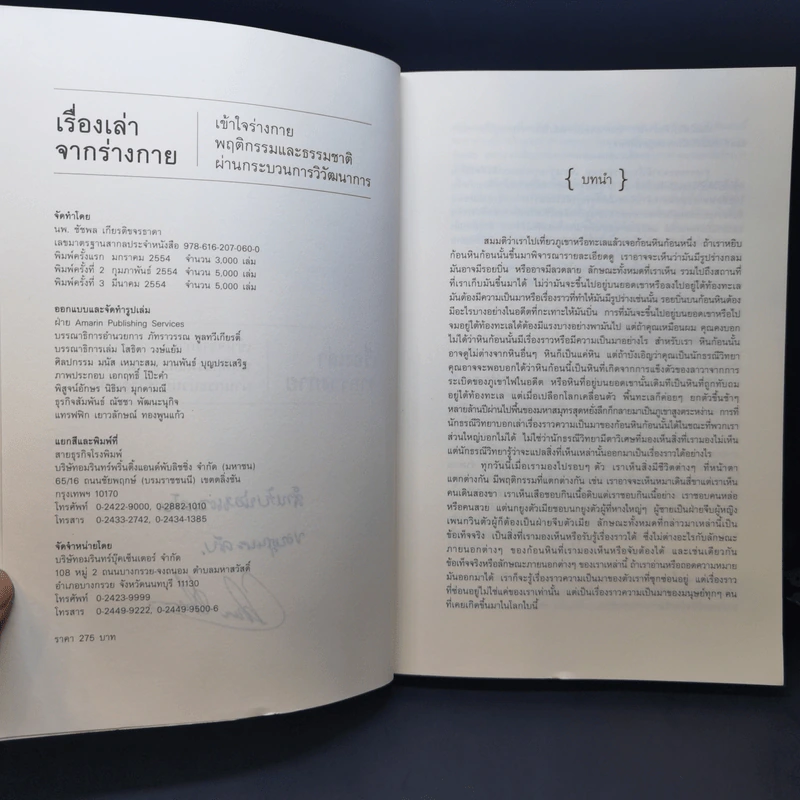 เรื่องเล่า
จากร่างกาย
เข้าใจร่างกาย
พฤติกรรมและธรรมชาติ
ผ่านกระบวนการวิวัฒนาการ
จัดทำโดย
นพ. ชัชพล เกียรติขจรธาดา
เลขมาตรฐานสากลประจำหนังสือ 978-616-207-060-0
พิมพ์ครั้งแรก มกราคม 2554 จำนวน 3,000 เล่ม
พิมพ์ครั้งที่ 2 กุมภาพันธ์ 2554 จำนวน 5,000 เล่ม
พิมพ์ครั้งที่ 3 มีนาคม 2554 จำนวน 5,000 เล่ม
ออกแบบและจัดทำรูปเล่ม
ฝ่าย Amarin Publishing Services
บรรณาธิการอำนวยการ ภัทราวรรณ พูลทวีเกียรติ์
บรรณาธิการเล่ม โสธิดา วงษ์แย้ม
ศิลปกรรม มนัส เหมาะสม, มานพันธ์ บุญประเสริฐ
ภาพประกอบ เอกฤทธิ์ โป๊ะคำ
พิสูจน์อักษร นิธิมา มุกดามณี
ธุรกิจสัมพันธ์ ณัชชา พัฒนะนุกิจ
แทรฟฟิก เยาวลักษณ์ ทองพูนแก้ว
แยกสีและพิมพ์ที่
สายธุรกิจโรงพิมพ์
บริษัทอมรินทร์พริ้นติ้งแอนด์พับลิชชิ่ง จำกัด (มหาชน)
65/16 ถนนชัยพฤกษ์ (บรมราชชนนี) เขตตลิ่งชัน
กรุงเทพฯ 10170
โทรศัพท์ 0-2422-9000, 0-2882-1010
โทรสาร 0-2433-2742, 0-2434-1385
จัดจำหน่ายโดย
บริษัทอมรินทร์บุ๊คเซ็นเตอร์ จำกัด
108 หมู่ 2 ถนนบางกรวย-จงถนอม ตำบลมหาสวัสดิ์
อำเภอบางกรวย จังหวัดนนทบุรี 11130
โทรศัพท์ 0-2423-9999
โทรสาร 0-2449-9222, 0-2449-9500-6
ราคา 275 บาท
{ บทนำ }
สมมติว่าเราไปเที่ยวภูเขาหรือทะเลแล้วเจอก้อนหินก้อนหนึ่ง ถ้าเราหยิบ
ก้อนหินก้อนนั้นขึ้นมาพิจารณารายละเอียดดู เราอาจจะเห็นว่ามันมีรูปร่างกลม
มันอาจมีรอยบิ่น หรืออาจมีลวดลาย ลักษณะทั้งหมดที่เราเห็น รวมไปถึงสถานที่
ที่เราเก็บมันขึ้นมาได้ ไม่ว่ามันจะขึ้นไปอยู่บนยอดเขาหรือลงไปอยู่ใต้ท้องทะเล
มันต้องมีความเป็นมาหรือเรื่องราวที่ทำให้มันมีรูปร่างเช่นนั้น รอยบิ่นบนก้อนหินต้อง
มีอะไรบางอย่างในอดีตที่กะเทาะให้มันบิ่น การที่มันจะขึ้นไปอยู่บนยอดเขาหรือไป
จมอยู่ใต้ท้องทะเลได้ต้องมีแรงบางอย่างพามันไป แต่ถ้าคุณเหมือนผม คุณคงบอก
ไม่ได้ว่าหินก้อนนั้นมีเรื่องราวหรือมีความเป็นมาอย่างไร สำหรับเรา หินก้อนนั้น
อาจดูไม่ต่างจากหินอื่นๆ หินก็เป็นแค่หิน แต่ถ้าบังเอิญว่าคุณเป็นนักธรณีวิทยา
คุณอาจจะพอบอกได้ว่าหินก้อนนี้เป็นหินที่เกิดจากการแข็งตัวของลาวาจากการ
ระเบิดของภูเขาไฟในอดีต หรือหินที่อยู่บนยอดเขานั้นเดิมทีเป็นหินที่ถูกทับถม
อยู่ใต้ท้องทะเล แต่เมื่อเปลือกโลกเคลื่อนตัว พื้นทะเลก็ค่อยๆ ยกตัวขึ้นช้าๆ
หลายล้านปีผ่านไปพื้นของมหาสมุทรสุดหยั่งลึกก็กลายมาเป็นภูเขาสูงตระหง่าน การที่
นักธรณีวิทยาบอกเล่าเรื่องราวความเป็นมาของก้อนหินก้อนนั้นได้ในขณะที่พวกเรา
ส่วนใหญ่บอกไม่ได้ ไม่ใช่ว่านักธรณีวิทยามีตาวิเศษที่มองเห็นสิ่งที่เรามองไม่เห็น
แต่นักธรณีวิทยารู้ว่าจะแปลสิ่งที่เห็นเหล่านั้นออกมาเป็นเรื่องราวได้อย่างไร
ทุกวันนี้เมื่อเรามองไปรอบๆ ตัว เราเห็นสิ่งมีชีวิตต่างๆ ที่หน้าตา
แตกต่างกัน มีพฤติกรรมที่แตกต่างกัน เช่น เราอาจจะเห็นหมาเดินสี่ขาแต่เราเห็น
คนเดินสองขา เราเห็นเสือชอบกินเนื้อดิบแต่เราชอบกินเนื้อย่าง เราชอบคนหล่อ
หรือคนสวย แต่นกยูงตัวเมียชอบนกยูงตัวผู้ที่หางใหญ่ๆ ผู้ชายเป็นฝ่ายจีบผู้หญิง
เพนกวินตัวผู้ก็ต้องเป็นฝ่ายจีบตัวเมีย ลักษณะทั้งหมดที่กล่าวมาเหล่านี้เป็น
ข้อเท็จจริง เป็นสิ่งที่เรามองเห็นหรือรับรู้เรื่องราวได้ ซึ่งไม่ต่างอะไรกับลักษณะ
ภายนอกต่างๆ ของก้อนหินที่เรามองเห็นหรือจับต้องได้ และเช่นเดียวกัน
ข้อเท็จจริงหรือลักษณะภายนอกต่างๆ ของเราเหล่านี้ ถ้าเราอ่านหรือถอดความหมาย
มันออกมาได้ เราก็จะรู้เรื่องราวความเป็นมาของตัวเราที่ซุกซ่อนอยู่ แต่เรื่องราว
ที่ซ่อนอยู่ไม่ใช่แค่ของเราเท่านั้น แต่เป็นเรื่องราวความเป็นมาของมนุษย์ทุกๆ คน
ที่เคยเกิดขึ้นมาในโลกใบนี้